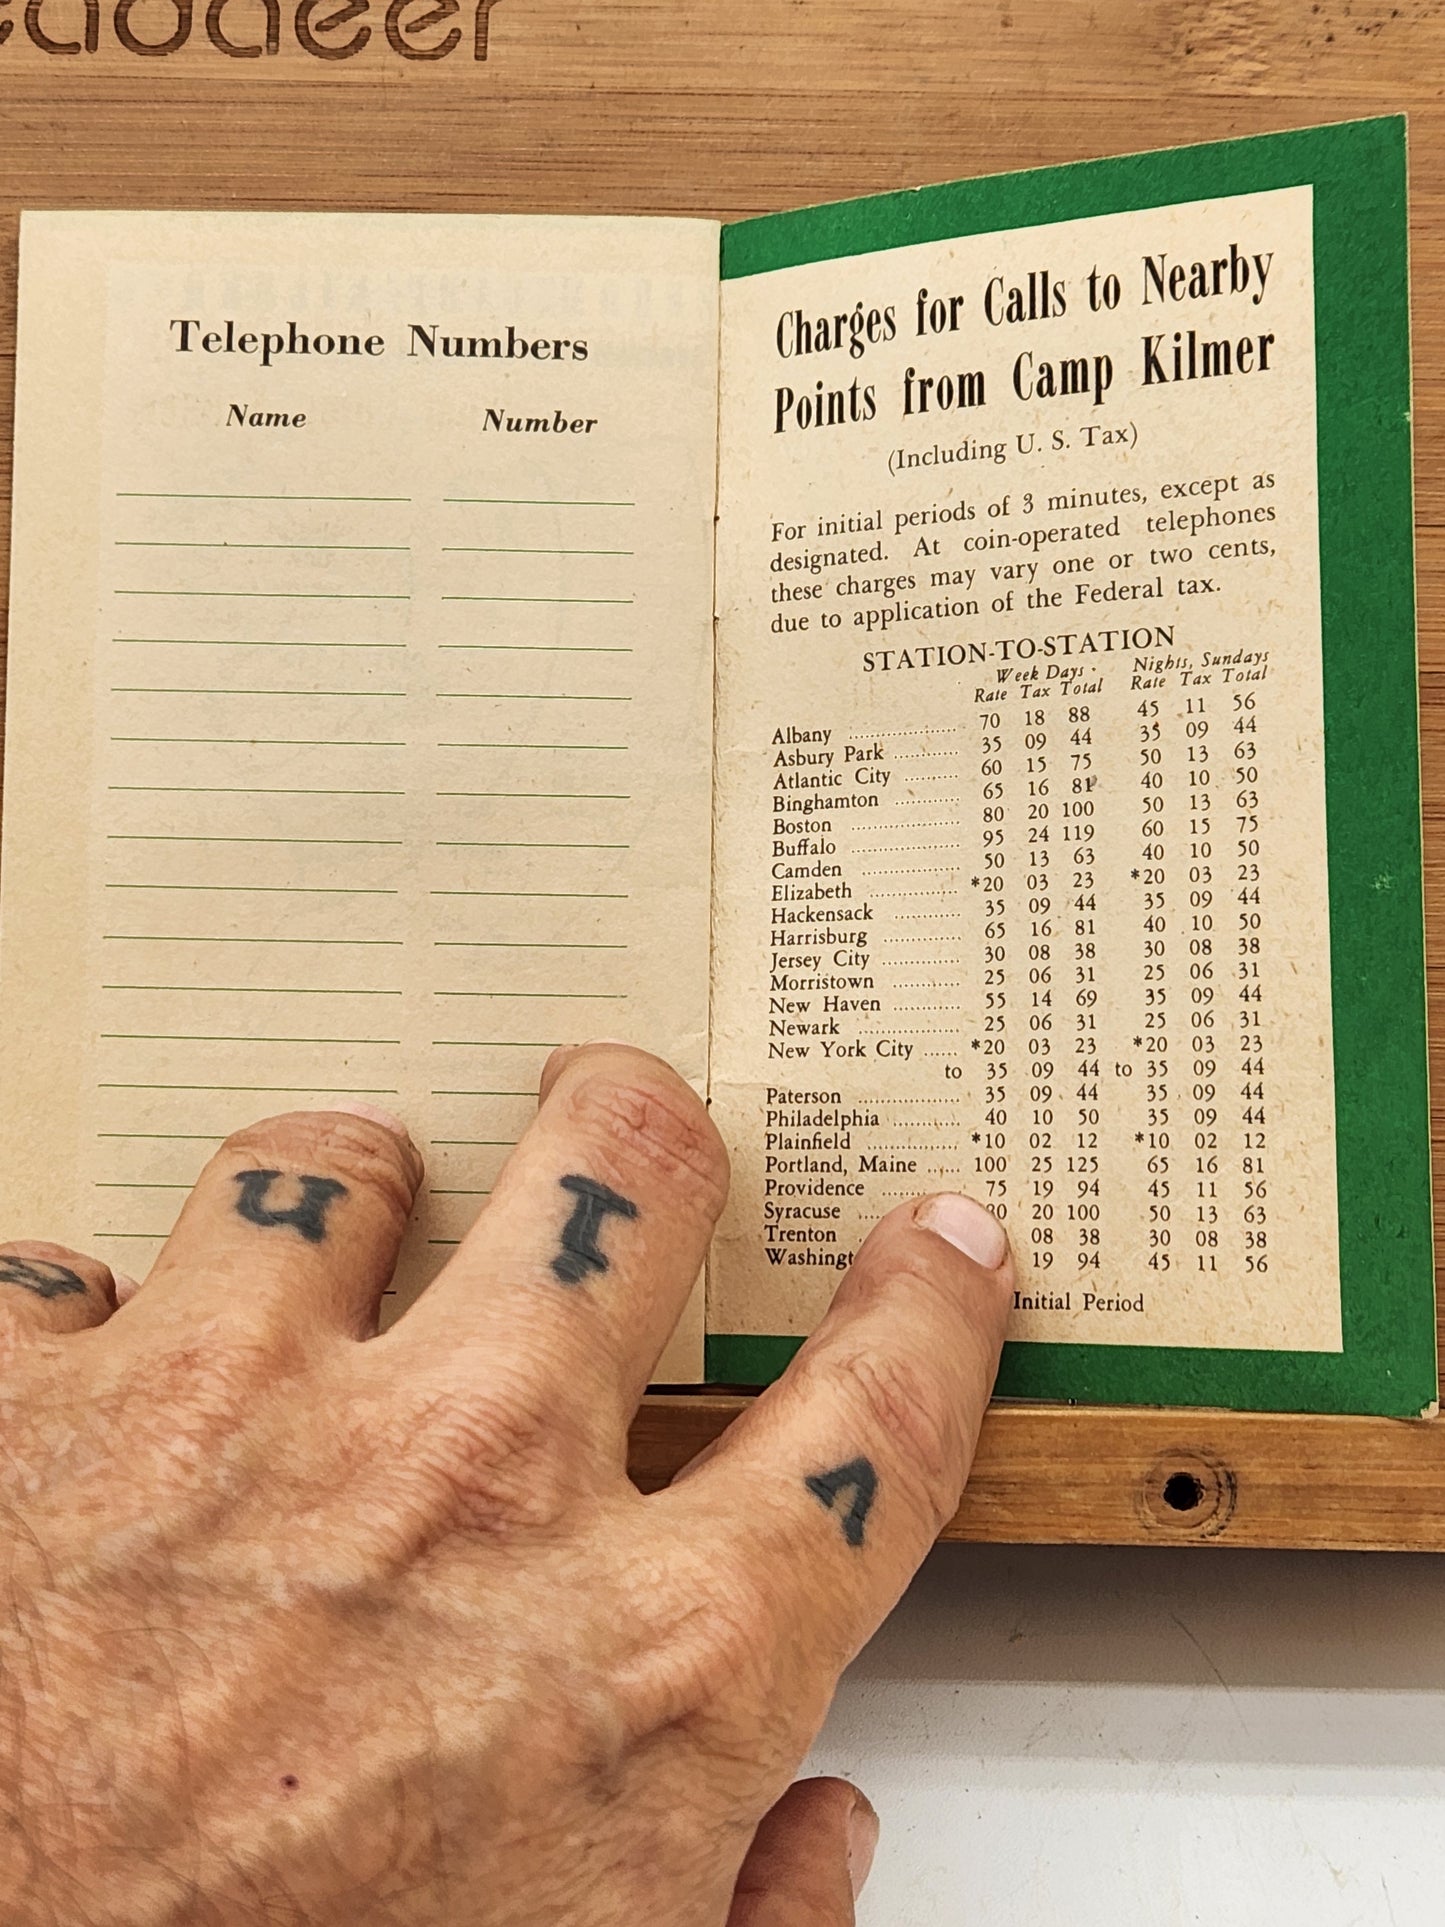 Telephone Numbers
Name Number
Charges for Calls to Nearby
Points from Camp Kilmer
(Including U. S. Tax)
For initial periods of 3 minutes, except as
designated. At coin-operated telephones
these charges may vary one or two cents,
due to application of the Federal tax.
STATION-TO-STATION
Week Days Nights, Sundays
Rate Tax Total Rate Tax Total
Albany 70 18 88 45 11 56
Asbury Park 35 09 44 35 09 44
Atlantic City 60 15 75 50 13 63
Binghamton 65 16 81 40 10 50
Boston 80 20 100 50 13 63
Buffalo 95 24 119 60 15 75
Camden 50 13 63 40 10 50
Elizabeth *20 03 23 *20 03 23
Hackensack 35 09 44 35 09 44
Harrisburg 65 16 81 40 10 50
Jersey City 30 08 38 30 08 38
Morristown 25 06 31 25 06 31
New Haven 55 14 69 35 09 44
Newark 25 06 31 25 06 31
New York City *20 03 23 *20 03 23
to 35 09 44 to 35 09 44
Paterson 35 09 44 35 09 44
Philadelphia 40 10 50 35 09 44
Plainfield *10 02 12 *10 02 12
Portland, Maine 100 25 125 65 16 81
Providence 75 19 94 45 11 56
Syracuse 20 100 50 13 63
Trenton 08 38 30 08 38
19 94 45 11 56
Initial Period